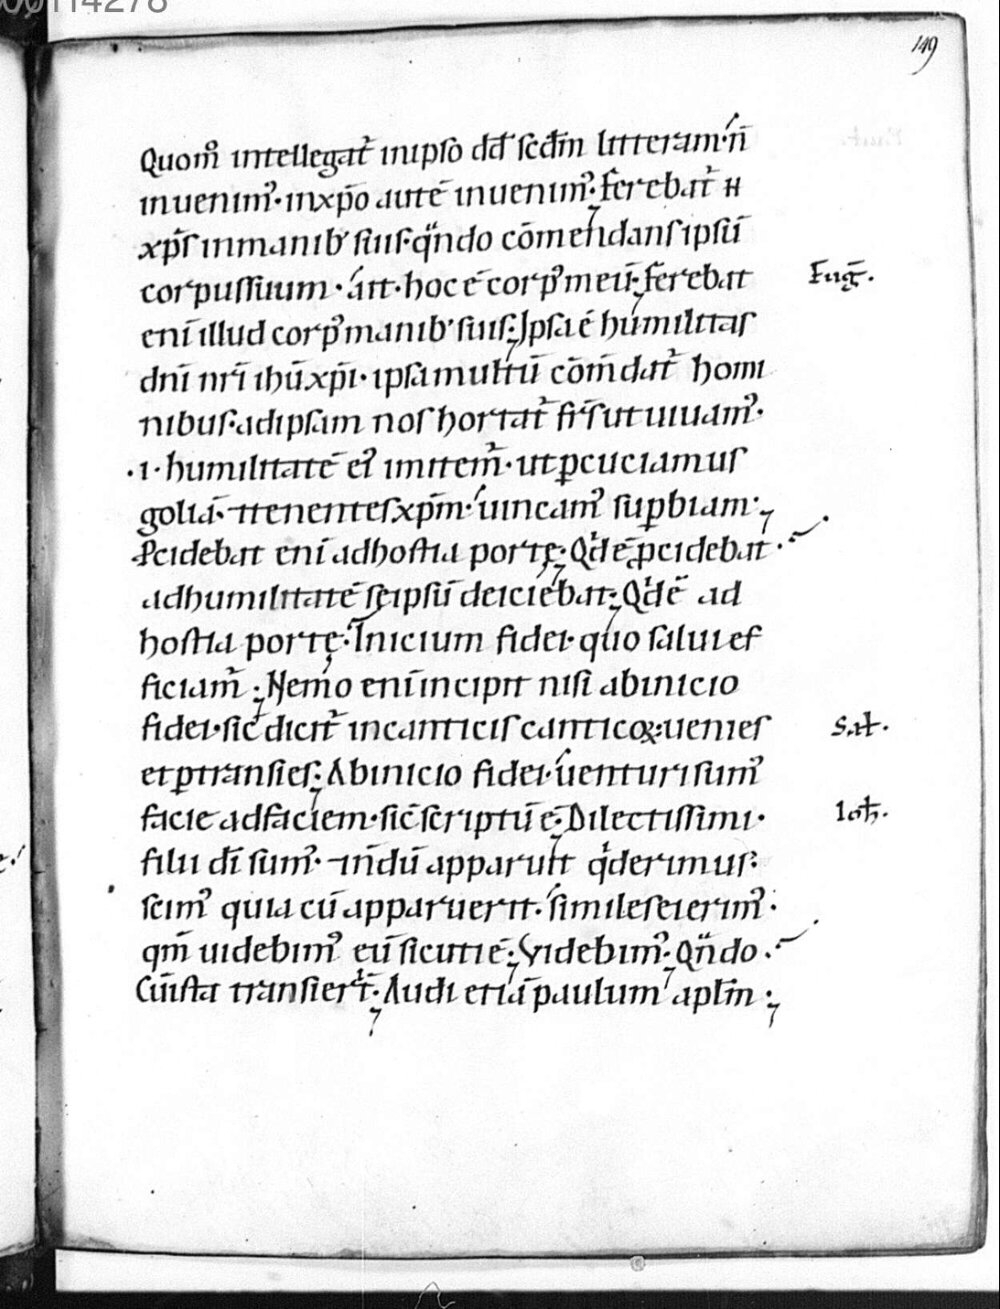 149
Quom̊ intellegat᷑ inipso dd̄ scd̄m litteram·n̄
inuenim᷒·inxp̄o autē inuenim᷒; ferebat᷑ H
xp̄s inmanib' suis·qn̄do cōmendansipsū
corpussuum·ait·hoc ē corp᷒ meū; ferebat
Fuḡ.
enī illud corp᷒ manib' suis; Ipsa ē humilitas
dn̄i nr̄i ihū xp̄i·ipsa multū cōm̄dat᷑ homi
nibus·adipsam nos hortat᷑ fr̄s ut uiuam᷒·
·i·humilitatē ei᷒ imitem᷑·utꝑcuciamus
goliā·⁊tenentesxp̄m·uincam᷒ suꝑbiam;
Ꝑcidebat enī adhostia portę; Qd̓ ē ꝑcidebat·
adhumilitatē seipsū deiciebat; Qd̓ ē ad
hostia portę· Inicium fidei·quo salui ef
ficiam᷑; Nemo enī incipit nisi abinicio
fidei·sic̄ dicit᷑ incanticis canticoꝝ:uenies
Sat.
etꝑtransies; Abinicio fidei·uenturi sum᷒
facie adfaciem·sic̄ scriptū ē; Dilectissimi·
Ioħ.
filii dī sum᷒·⁊n̄dū apparuit qd̓erimus:
scim᷒ quia cū apparuerit·similes eierim᷒·
qm̄ uidebim᷒ eū sicuti ē; Videbim᷒· Qn̄do·
Cūista transier̄t; Audi etiā paulum apl̄m;